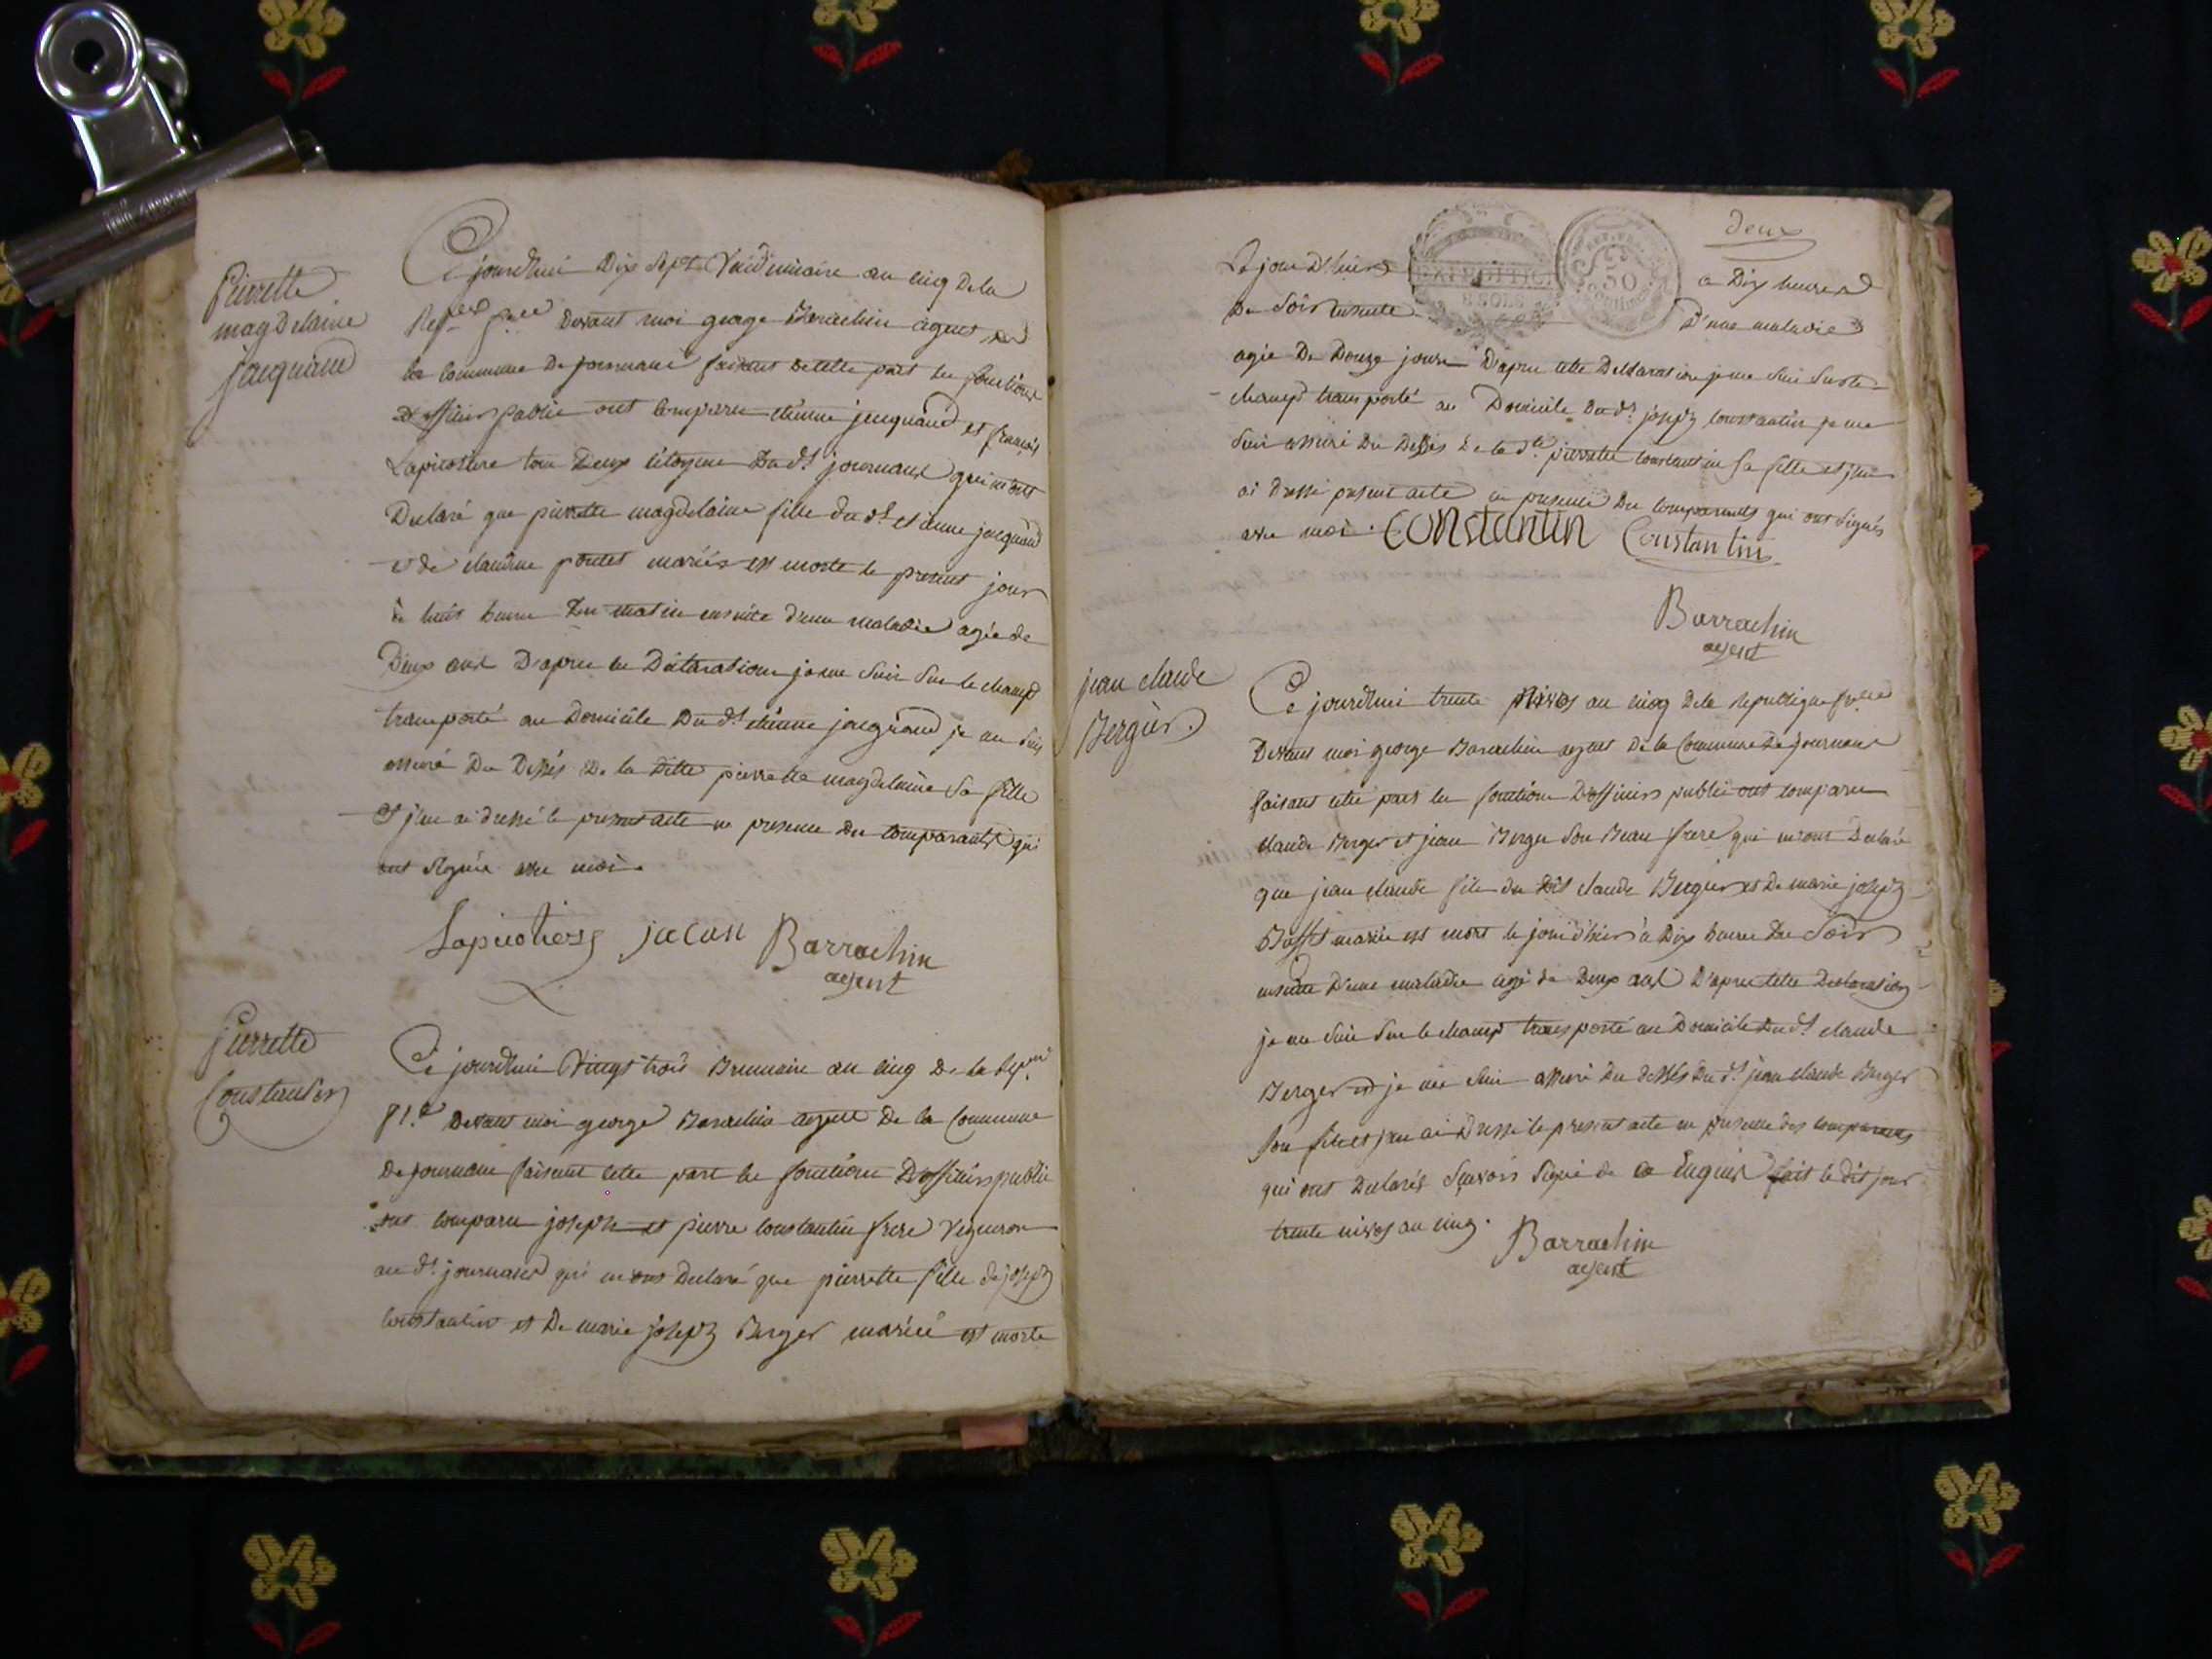 Pierrette
magdelaine
jacquand
Ce jourdhui Dix Sept Vendemiaire an cinq de la
Devant moi george Barrachin agent de
la commune de journans faisant cette part les fonctions
d'officier public ont comparu etienne jacquand et françois
Lapierre tous deux citoyens du dt journans qui m'ont
Declaré que pierrette magdelaine fille du dt etienne jacquand
et de claudine poulet mariés est morte le present jour
à huit heures du matin ensuite d'une maladie agée de
Deux ans D'apres les Déclarations je me suis sur le champ
transporté au Domicile du dt etienne jacquand je me suis
assuré du Déssés de la ditte pierrette magdelaine sa fille
Et j'en ai dressé le present acte en presence des comparants qui
ont signés avec moi.
jacan Barrachin
agent
Pierrette
Constantin
Ce jourdhui Vingt trois Brumaire an cinq de la
Devant moi george Barrachin agent de la commune
de journans faisant cette part les fonctions D'officier public
ont comparu joseph et pierre constantin frere vigneron
au dt journans qui m'ont Declaré que pierrette fille de joseph
constantin et de marie joseph Berger mariée est morte
deux
Le jour D'hier a Dix heures
du soir ensuite D'une maladie
EXPEDITION
50
agée de Douze jours D'apres cette Declaration je me suis sur le
champ transporté au Domicile du dt joseph constantin je me
suis assuré du Dessés de la dte pierrette constantin sa fille et j'en
ai dressé present acte en presence des comparants qui ont signés
avec moi. Constantin Constantin
Barrachin
agent
jean claude
Bergér.
Ce jourdhui trente nivos an cinq de la republique
Devant moi george Barrachin agent de la commune de journans
faisant cette part les fonctions D'officier public ont comparu
claude Berger et jean Berger son Beau frere qui m'ont Declaré
que jean claude fils du dit claude Berger et de marie joseph
Buffet mariés est mort le jour d'hier à Dix heures du soir
ensuitte D'une maladie agé de Deux ans D'apres cette Declaration
je me suis sur le champ transporté au Domicile du dt claude
Berger et je me suis assuré du dessés du dt jean claude Berger
son fils et j'en ai Dressé le present acte en presence des comparans
qui ont Declarés sçavoir signé de ce enquis fait le dit jour
trente nivos an cinq.
Barrachin
agent